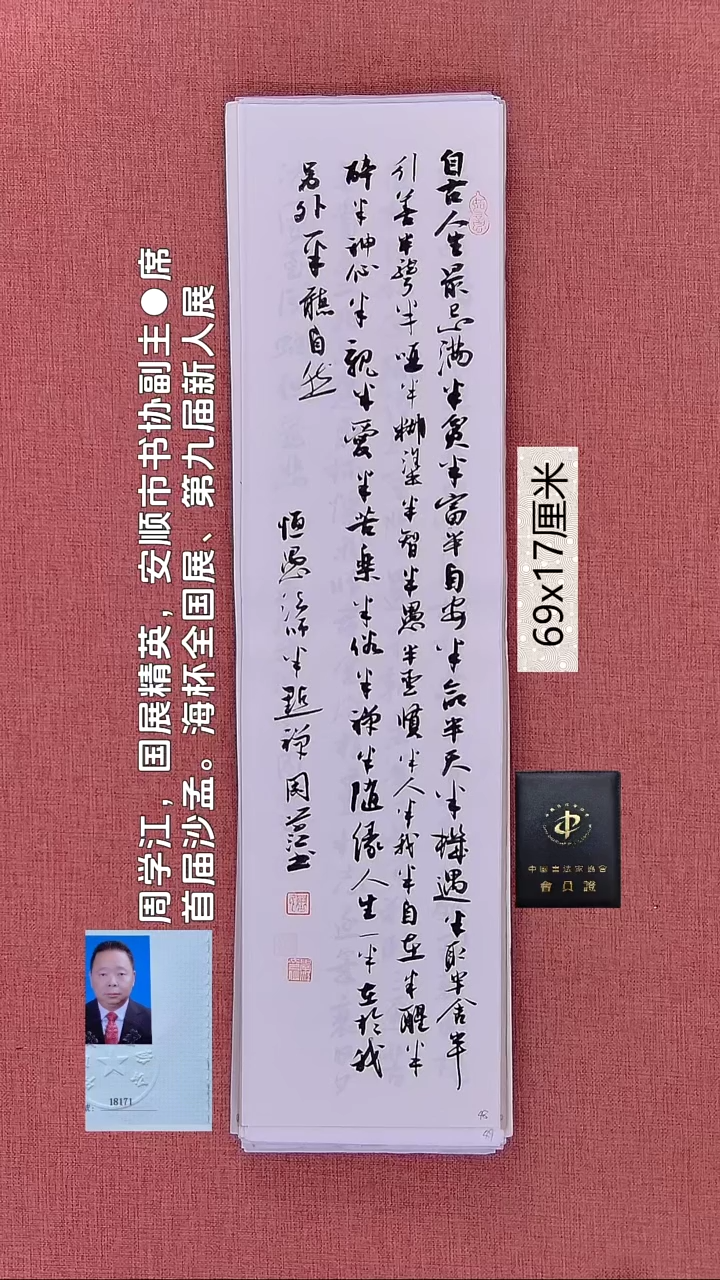 自古人生最忌满半贫半富半自安半命半天半機遇半取半舍半
行善半聾半啞半糊塗半智半愚半聖賢半人半我半自在半醒半
醉半神仙半親半愛半苦樂半俗半禅半随缘人生一半在於我
另外一半聽自然
恒愚法師半點禅周学江書
69x17厘米
周学江，国展精英，安顺市书协副主●席
首届沙孟。海杯全国展、第九届新人展
會員證
18171